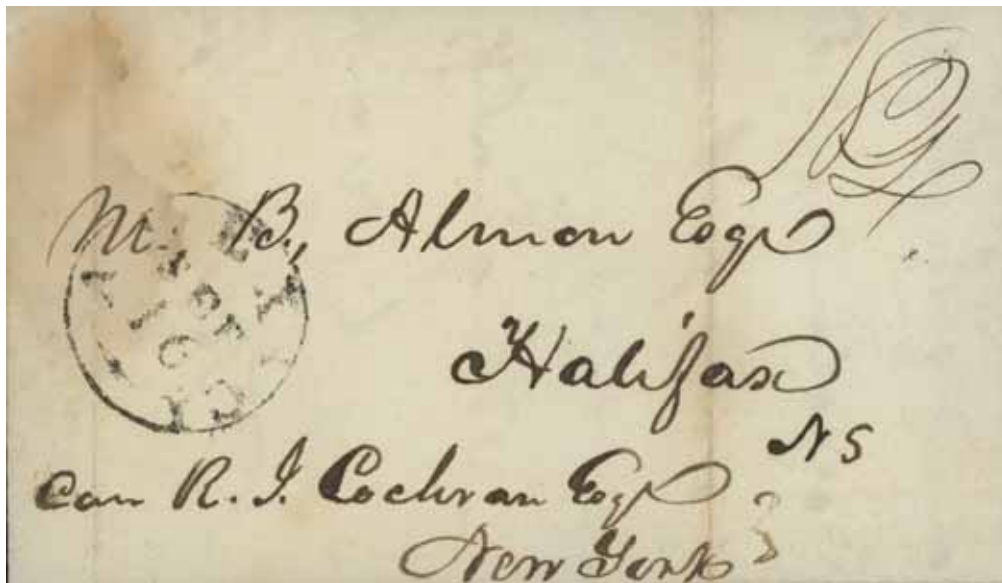 M. B., Almon Esqr
Halifax
N S
Care R. J. Cochran Esqr
New York